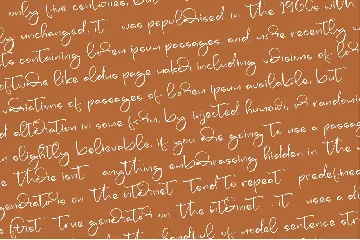 only five centuries, but
ly unchanged. It was popularised in the 1960s with
ts containing lorem ipsum passages, and more recently w
oftware like aldus page maker including versions of lor
variations of passages of lorem ipsum available, but
d alteration in some form, by injected humour, or randomis
n slightly believable. if you are going to use a passag
e there isnt anything embarrassing hidden in the
generators on the internet tend to repeat predefined
e first true generator on the internet. it uses a di
handful of model sentence st